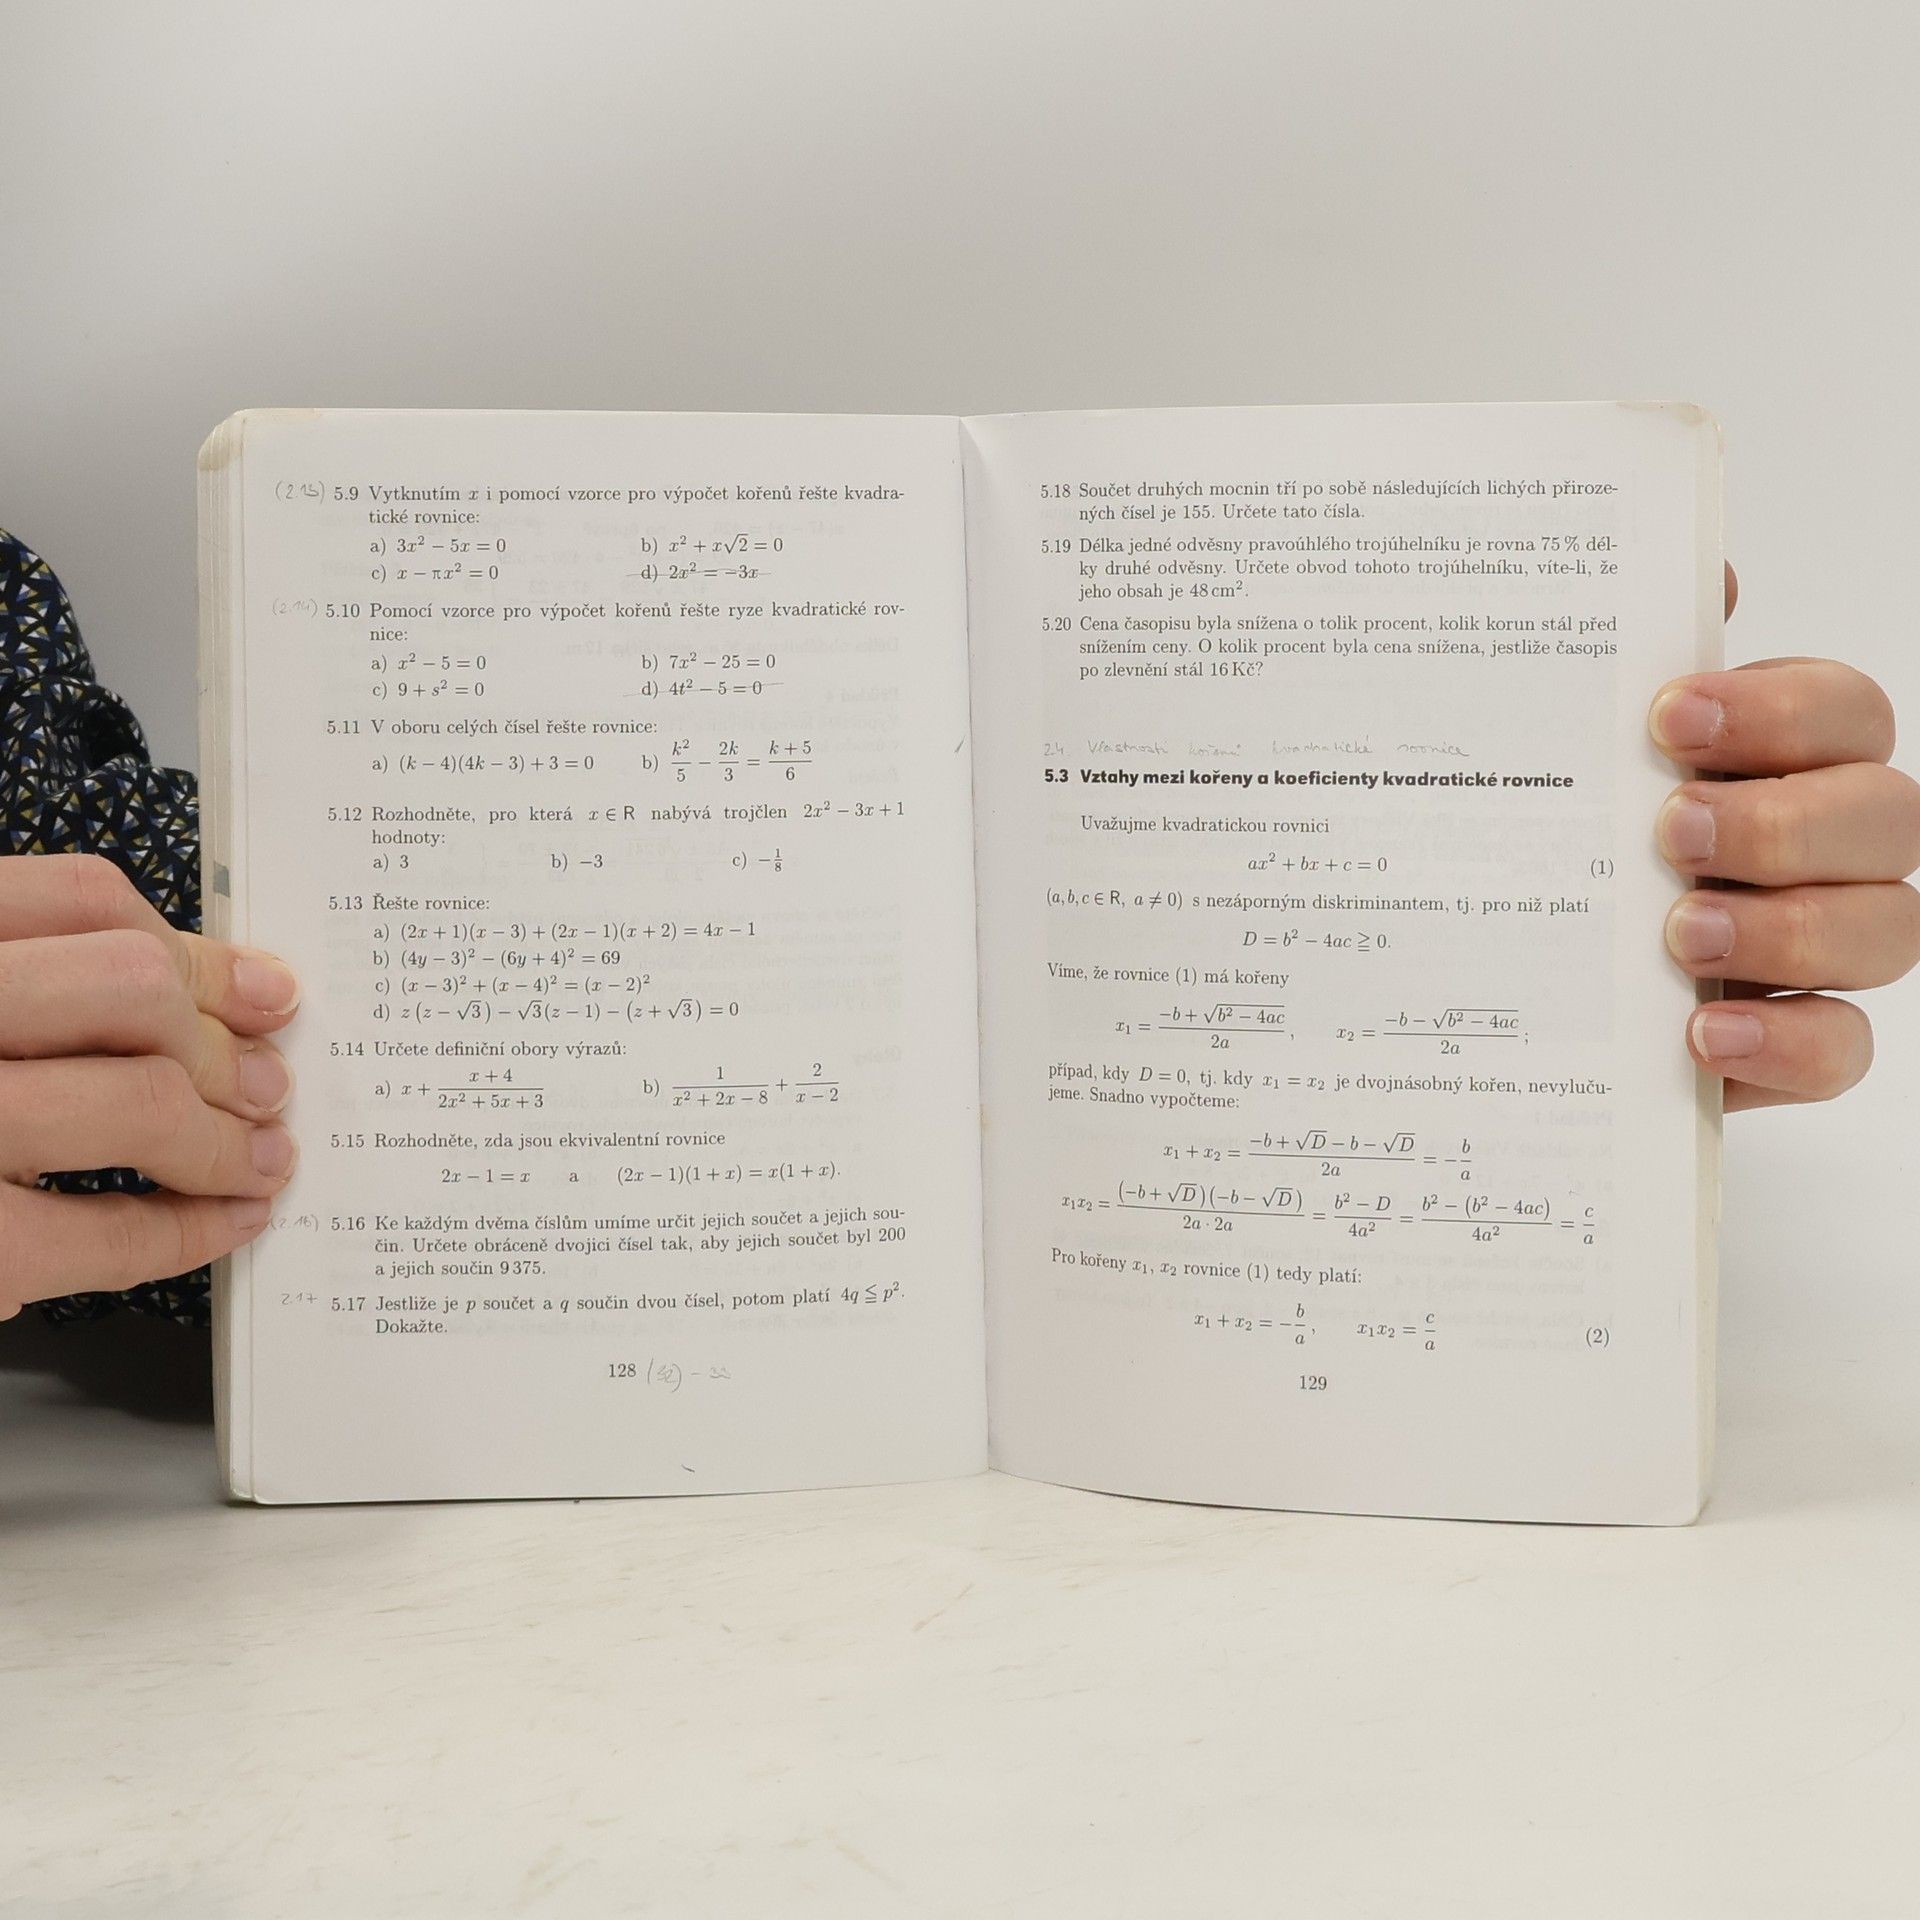 (2.13) 5.9 Vytknutím x i pomocí vzorce pro výpočet kořenů řešte kvadra-
tické rovnice:
a) 3x² − 5x = 0 b) x² + x√2 = 0
c) x − πx² = 0 d) 2x² = −3x
(2.14) 5.10 Pomocí vzorce pro výpočet kořenů řešte ryze kvadratické rov-
nice:
a) x² − 5 = 0 b) 7x² − 25 = 0
c) 9 + s² = 0 d) 4t² − 5 = 0
5.11 V oboru celých čísel řešte rovnice:
a) (k − 4)(4k − 3) + 3 = 0 b) k²/5 − 2k/3 = (k + 5)/6
5.12 Rozhodněte, pro která x ∈ R nabývá trojčlen 2x² − 3x + 1
hodnoty:
a) 3 b) −3 c) −1/8
5.13 Řešte rovnice:
a) (2x + 1)(x − 3) + (2x − 1)(x + 2) = 4x − 1
b) (4y − 3)² − (6y + 4)² = 69
c) (x − 3)² + (x − 4)² = (x − 2)²
d) z(z − √3) − √3(z − 1) − (z + √3) = 0
5.14 Určete definiční obory výrazů:
a) x + (x + 4)/(2x² + 5x + 3) b) 1/(x² + 2x − 8) + 2/(x − 2)
5.15 Rozhodněte, zda jsou ekvivalentní rovnice
2x − 1 = x a (2x − 1)(1 + x) = x(1 + x).
(2.16) 5.16 Ke každým dvěma číslům umíme určit jejich součet a jejich sou-
čin. Určete obráceně dvojici čísel tak, aby jejich součet byl 200
a jejich součin 9 375.
2.17 5.17 Jestliže je p součet a q součin dvou čísel, potom platí 4q ≦ p².
Dokažte.
128
5.18 Součet druhých mocnin tří po sobě následujících lichých přiroze-
ných čísel je 155. Určete tato čísla.
5.19 Délka jedné odvěsny pravoúhlého trojúhelníku je rovna 75 % dél-
ky druhé odvěsny. Určete obvod tohoto trojúhelníku, víte-li, že
jeho obsah je 48 cm².
5.20 Cena časopisu byla snížena o tolik procent, kolik korun stál před
snížením ceny. O kolik procent byla cena snížena, jestliže časopis
po zlevnění stál 16 Kč?
2.4. Vlastnosti kořenů kvadratické rovnice
5.3 Vztahy mezi kořeny a koeficienty kvadratické rovnice
Uvažujme kvadratickou rovnici
ax² + bx + c = 0 (1)
(a, b, c ∈ R, a ≠ 0) s nezáporným diskriminantem, tj. pro niž platí
D = b² − 4ac ≧ 0.
Víme, že rovnice (1) má kořeny
x₁ = (−b + √(b² − 4ac))/2a, x₂ = (−b − √(b² − 4ac))/2a;
případ, kdy D = 0, tj. kdy x₁ = x₂ je dvojnásobný kořen, nevyluču-
jeme. Snadno vypočteme:
x₁ + x₂ = (−b + √D − b − √D)/2a = −b/a
x₁x₂ = (−b + √D)(−b − √D)/(2a · 2a) = (b² − D)/4a² = (b² − (b² − 4ac))/4a² = c/a
Pro kořeny x₁, x₂ rovnice (1) tedy platí:
x₁ + x₂ = −b/a, x₁x₂ = c/a (2)
129